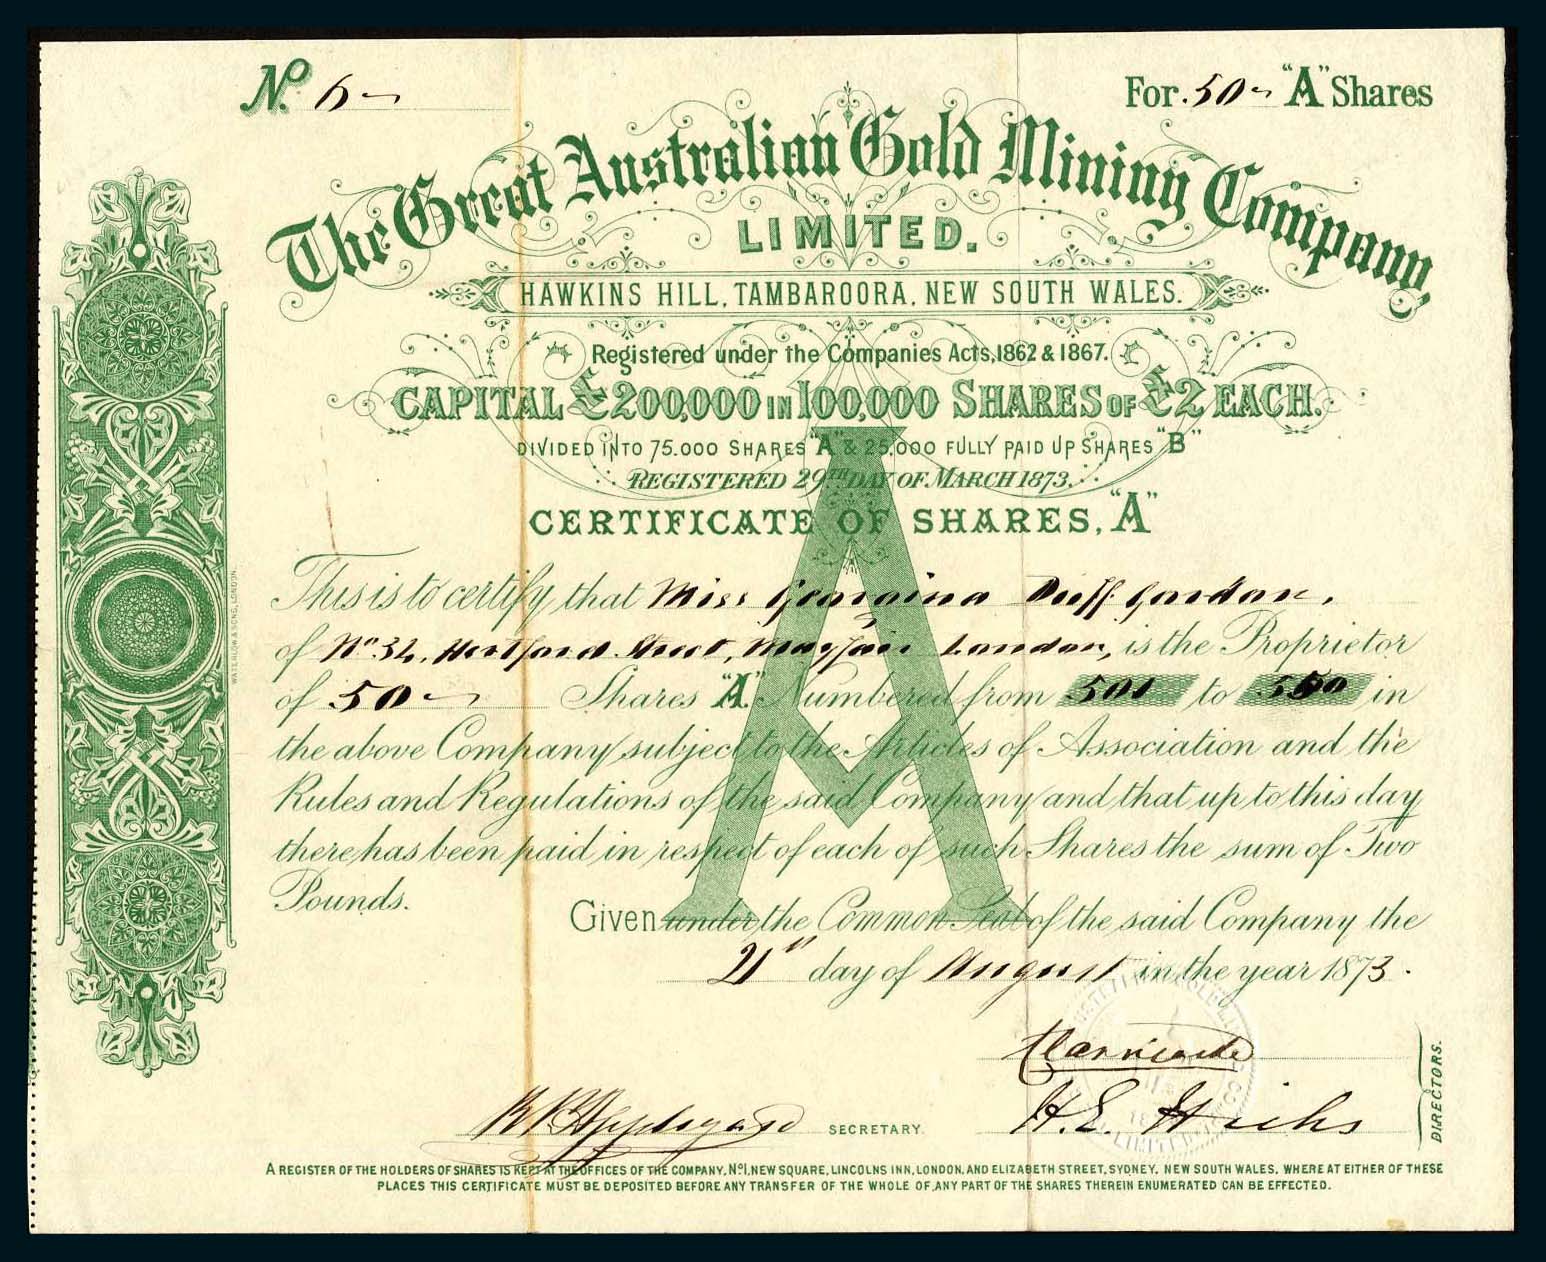 No. 6
For 50 "A" Shares
The Great Australian Gold Mining Company
LIMITED.
HAWKINS HILL, TAMBAROORA, NEW SOUTH WALES.
Registered under the Companies Acts, 1862 & 1867.
CAPITAL £200,000 IN 100,000 SHARES OF £2 EACH.
DIVIDED INTO 75.000 SHARES "A" & 25,000 FULLY PAID UP SHARES "B"
REGISTERED 29TH DAY OF MARCH 1873.
CERTIFICATE OF SHARES, "A"
This is to certify that Miss Georgina Duff Gordon,
of No. 34, Hertford Street, Mayfair London, is the Proprietor
of 50 Shares "A". Numbered from 501 to 550 in
the above Company subject to the Articles of Association and the
Rules and Regulations of the said Company and that up to this day
there has been paid in respect of each of such Shares the sum of Two
Pounds.
Given under the Common Seal of the said Company the
21st day of August in the year 1873.
H. E. Hicks
DIRECTORS.
SECRETARY.
A REGISTER OF THE HOLDERS OF SHARES IS KEPT AT THE OFFICES OF THE COMPANY, No. 1, NEW SQUARE, LINCOLNS INN, LONDON, AND ELIZABETH STREET, SYDNEY, NEW SOUTH WALES. WHERE AT EITHER OF THESE
PLACES THIS CERTIFICATE MUST BE DEPOSITED BEFORE ANY TRANSFER OF THE WHOLE OF, ANY PART OF THE SHARES THEREIN ENUMERATED CAN BE EFFECTED.
WATERLOW & SONS, LONDON.
A